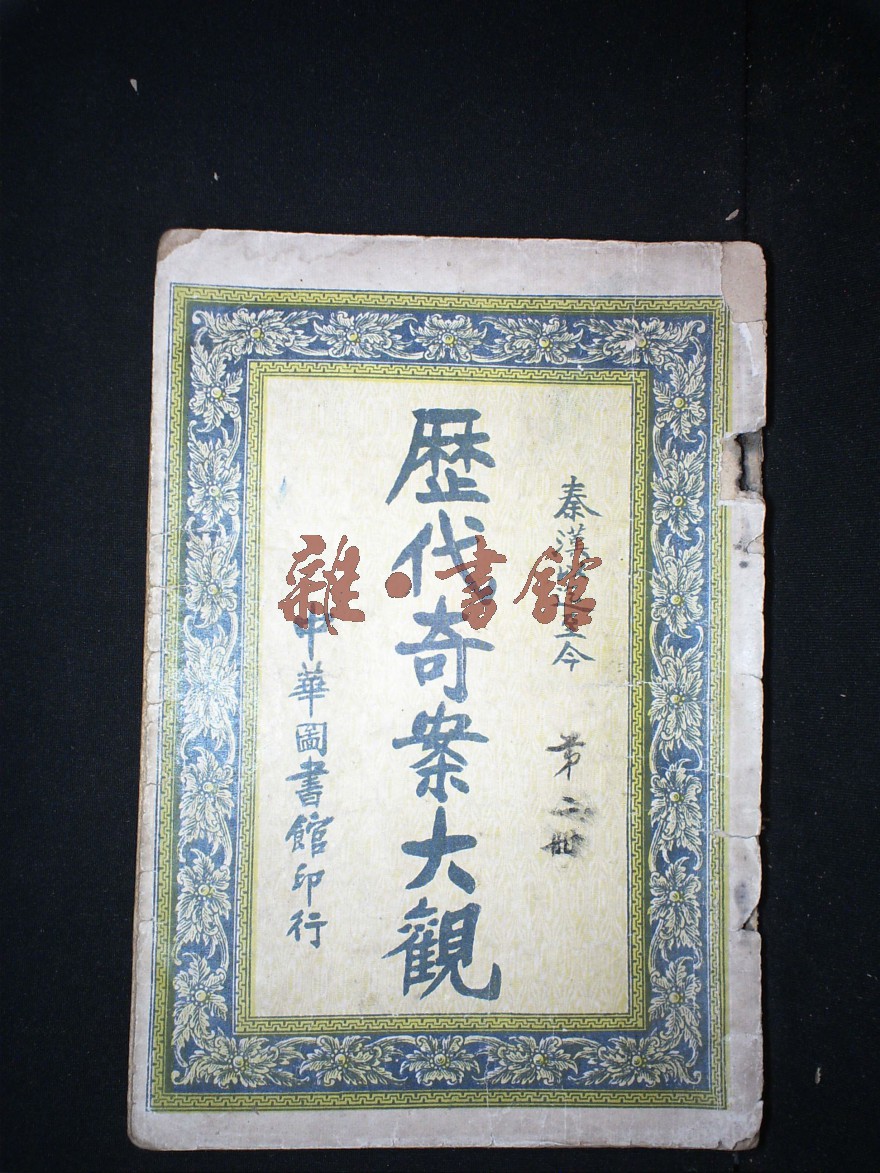 秦漢至今
第二冊
歷代奇案大觀
中華圖書館印行
雜·書館